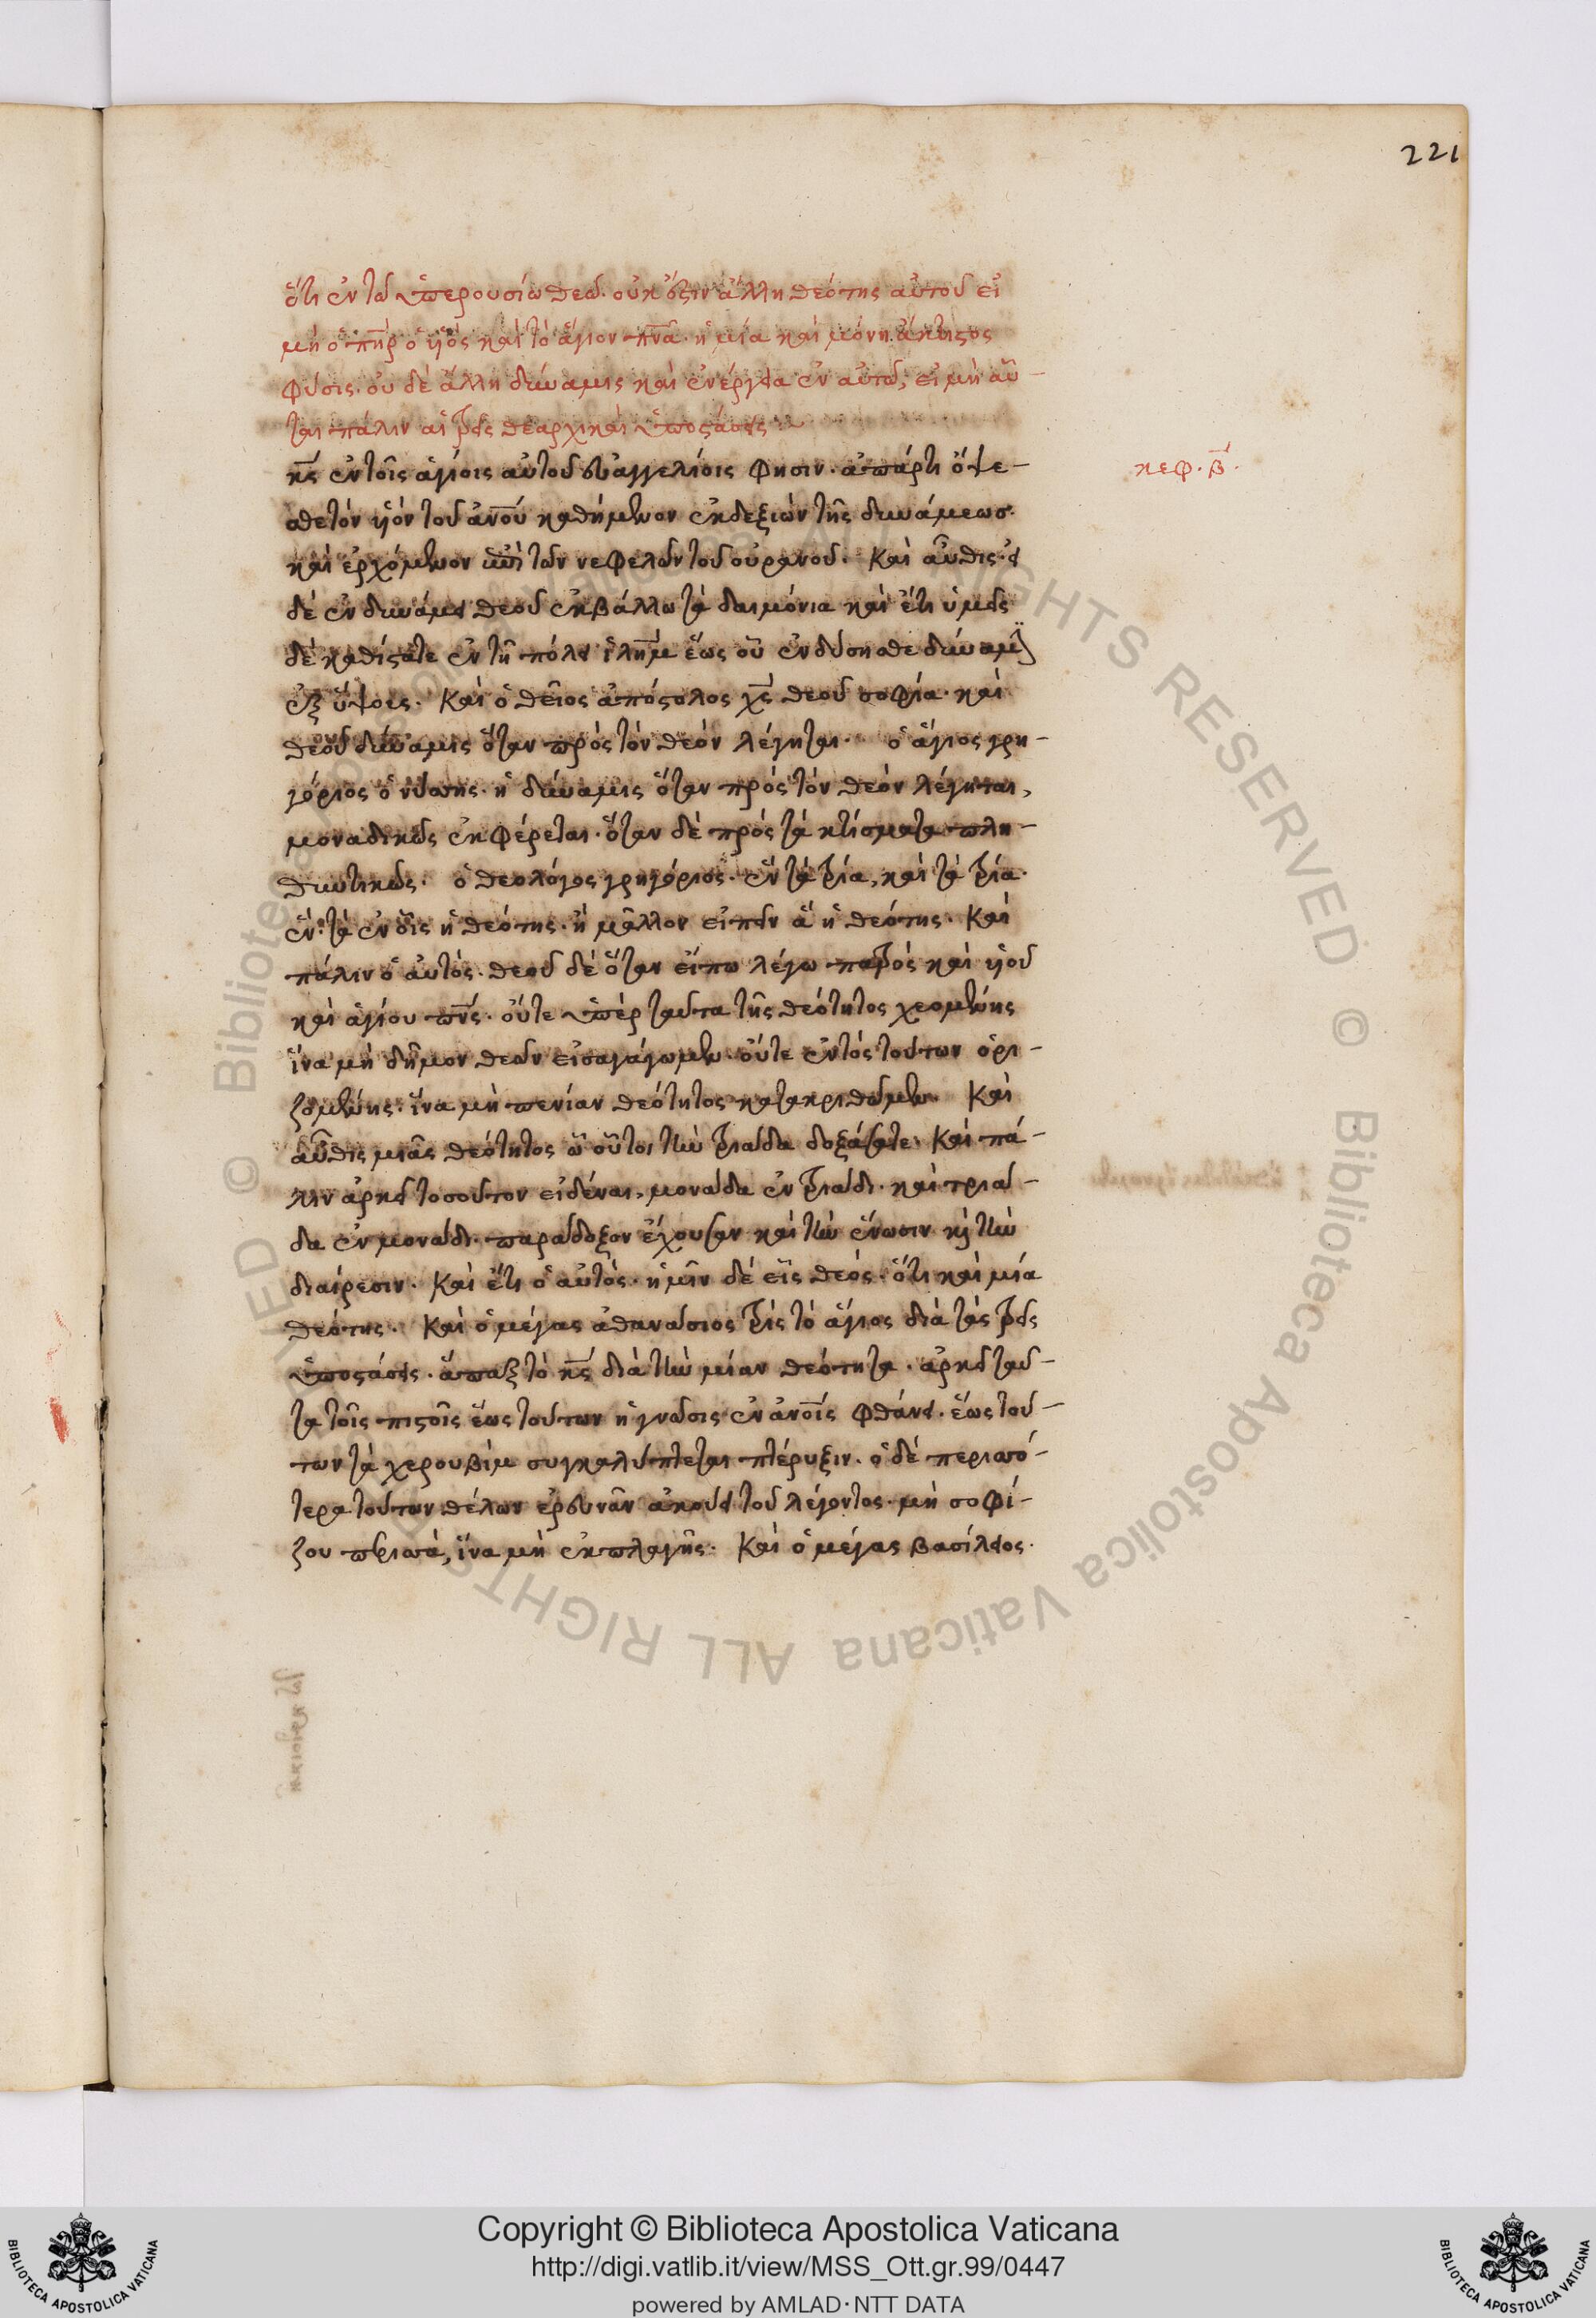 221
ὅτι ἐν τῶ ὑπερουσίω θεῶ. οὐκ ἔστιν ἄλλη θεότης αὐτοῦ εἰ
μὴ ὁ πη̅ρ ὁ υἱὸς καὶ τὸ ἅγιον πν̅α. ἡ μία καὶ μόνη ἄκτιστος
φύσις. οὐ δὲ ἄλλη δύναμις καὶ ἐνέργεια ἐν αὐτῶ, εἰ μὴ αὗ-
ται πάλιν αἱ τρεῖς θεαρχικαὶ ὑποστάσεις
κεφ. β̅.
κ̅ς ἐν τοῖς ἁγίοις αὐτοῦ εὐαγγελίοις φησιν. ἀπάρτι ὄψε-
σθε τὸν υἱὸν τοῦ ἀν̅ου καθήμενον ἐκ δεξιῶν τῆς δυνάμεως.
καὶ ἐρχόμενον ἐπὶ τῶν νεφελῶν τοῦ οὐρανοῦ. Καὶ αὖθις. εἰ
δὲ ἐν δυνάμει θεοῦ ἐκβάλλω τὰ δαιμόνια καὶ ἔτι ὑμεῖς
δὲ καθίσατε ἐν τῆ πόλει ἱλη̅μ ἕως οὗ ἐνδύσησθε δύναμιν
ἐξ ὕψους. Καὶ ὁ θεῖος ἀπόστολος χ̅ς θεοῦ σοφία. καὶ
θεοῦ δύναμις ὅταν πρὸς τὸν θεὸν λέγηται. ὁ ἅγιος γρη-
γόριος ὁ νύσσης. ἡ δύναμις ὅταν πρὸς τὸν θεὸν λέγηται,
μοναδικῶς ἐκφέρεται. ὅταν δὲ πρὸς τὰ κτίσματα πλη-
θυντικῶς. ὁ θεολόγος γρηγόριος. ἓν τὰ τρία, καὶ τὰ τρία
ἕν. τὰ ἐν οἷς ἡ θεότης. ἢ μᾶλλον εἰπεῖν ἃ ἡ θεότης. Καὶ
πάλιν ὁ αὐτός. θεοῦ δὲ ὅταν εἴπω λέγω πατρὸς καὶ υἱοῦ
καὶ ἁγίου πν̅ς. οὔτε ὑπὲρ ταῦτα τῆς θεότητος χεομένης
ἵνα μὴ δῆμον θεῶν εἰσαγάγωμεν. οὔτε ἐντὸς τούτων ὁρι-
ζομένης. ἵνα μὴ πενίαν θεότητος κατακριθῶμεν. Καὶ
αὖθις μιᾶς θεότητος ὦ οὗτοι τὴν τριάδα δοξάσατε. Καὶ πά-
λιν ἀρκεῖ τοσοῦτον εἰδέναι, μονάδα ἐν τριάδι. καὶ τριά-
δα ἐν μονάδι. παράδοξον ἔχουσαν καὶ τὴν ἕνωσιν κ̀ τὴν
διαίρεσιν. Καὶ ἔτι ὁ αὐτός. ἡμῖν δὲ εἷς θεός. ὅτι καὶ μία
θεότης. Καὶ ὁ μέγας ἀθανάσιος τρὶς τὸ ἅγιος διὰ τὰς τρεῖς
ὑποστάσεις. ἅπαξ τὸ κ̅ς διὰ τὴν μίαν θεότητα. ἀρκεῖ ταῦ-
τα τοῖς πιστοῖς ἕως τούτων ἡ γνῶσις ἐν ἀν̅οις φθάνει. ἕως τού-
των τὰ χερουβὶμ συγκαλύπτεται πτέρυξιν. ὁ δὲ περισσό-
τερα τούτων θέλων ἐρευνᾶν ἀκούει τοῦ λέγοντος. μὴ σοφί-
ζου περισσὰ, ἵνα μὴ ἐκπλαγῆς. Καὶ ὁ μέγας βασίλειος.
© Biblioteca Apostolica Vaticana ALL RIGHTS RESERVED
Copyright © Biblioteca Apostolica Vaticana
http://digi.vatlib.it/view/MSS_Ott.gr.99/0447
powered by AMLAD·NTT DATA
BIBLIOTECA APOSTOLICA VATICANA
BIBLIOTECA APOSTOLICA VATICANA